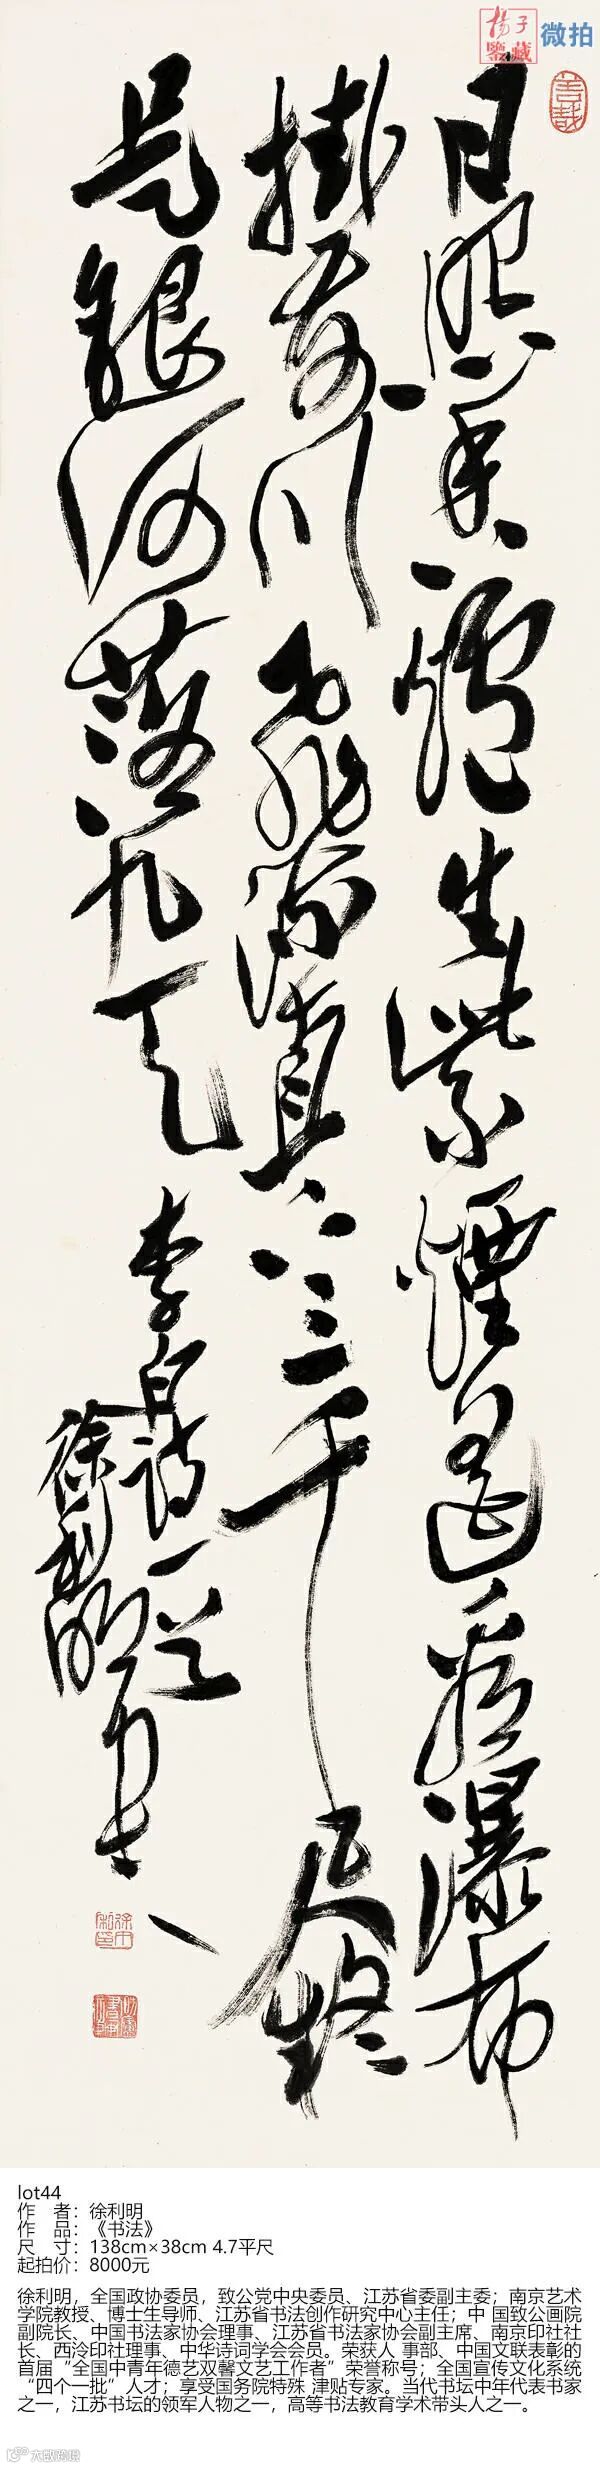 揚子
鑒藏
微拍
善哉
日照香爐生紫煙遙看瀑布
掛前川飛流直下三千尺疑
是銀河落九天
李白詩一首
徐利明书
lot44
作 者：徐利明
作 品：《书法》
尺 寸：138cm×38cm 4.7平尺
起拍价：8000元
徐利明，全国政协委员，致公党中央委员、江苏省委副主委；南京艺术
学院教授、博士生导师、江苏省书法创作研究中心主任；中 国致公画院
副院长、中国书法家协会理事、江苏省书法家协会副主席、南京印社社
长、西泠印社理事、中华诗词学会会员。荣获人 事部、中国文联表彰的
首届“全国中青年德艺双馨文艺工作者”荣誉称号；全国宣传文化系统
“四个一批”人才；享受国务院特殊 津贴专家。当代书坛中年代表书家
之一，江苏书坛的领军人物之一，高等书法教育学术带头人之一。
大数跨境